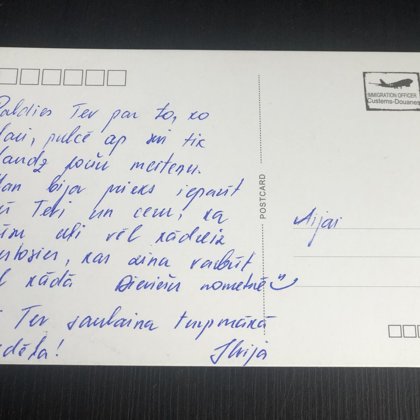 Paldies Tev par to, ko
dari, pulcē ap sevi tik
daudz jauku meiteņu.
Man bija prieks iepazīt
Tevi un ceru, ka
ceļi vēl kādreiz
krustosies, kas zina varbūt
vēl kādā Sieviešu nometnē
Tev saulaina turpmākā
nedēļa! Ilvija
POSTCARD
IMMIGRATION OFFICER
Customs-Douanes
Aijai